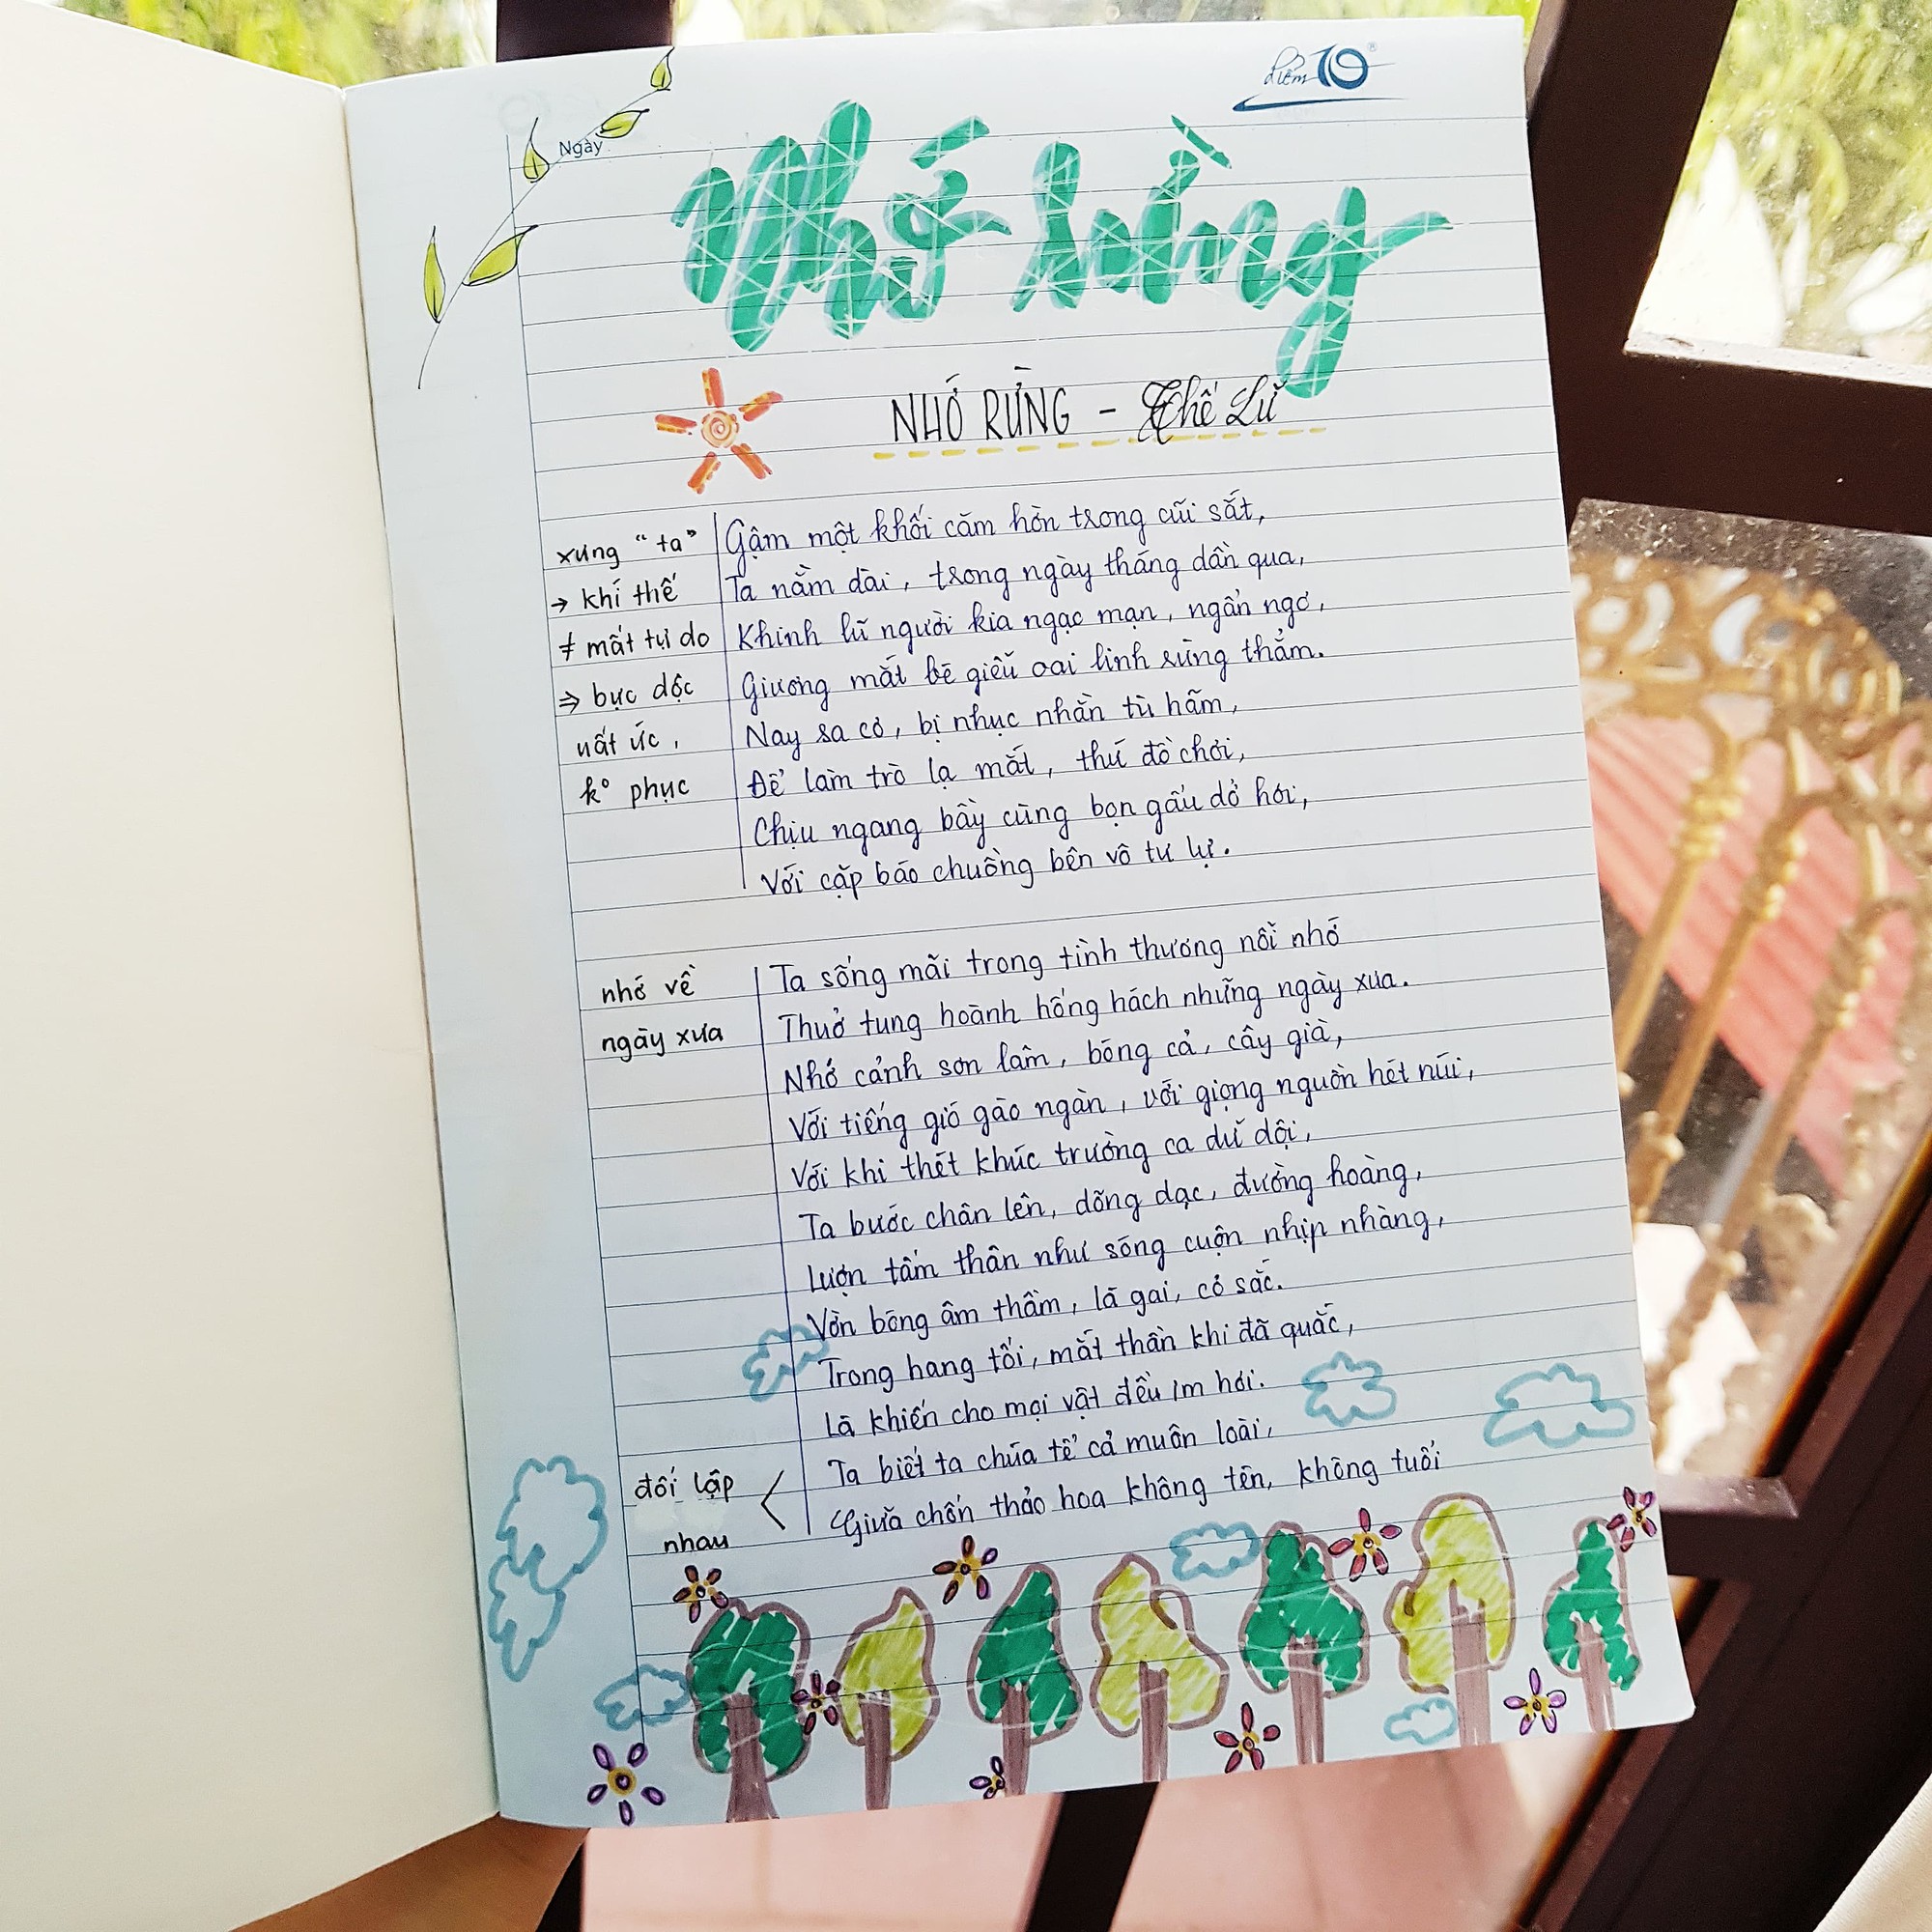 điểm 10
Ngày
Nhớ rừng
NHỚ RỪNG - Thế Lữ
xưng "ta"
→ khí thế
≠ mất tự do
⇒ bực dọc
uất ức,
k° phục
Gậm một khối căm hờn trong cũi sắt,
Ta nằm dài, trong ngày tháng dần qua,
Khinh lũ người kia ngạc mạn, ngẩn ngơ,
Giương mắt bé giễu oai linh rừng thẳm.
Nay sa cơ, bị nhục nhằn tù hãm,
Để làm trò lạ mắt, thứ đồ chơi,
Chịu ngang bầy cùng bọn gấu dở hơi,
Với cặp báo chuồng bên vô tư lự.
nhớ về
ngày xưa
Ta sống mãi trong tình thương nỗi nhớ
Thuở tung hoành hống hách những ngày xưa.
Nhớ cảnh sơn lâm, bóng cả, cây già,
Với tiếng gió gào ngàn, với giọng nguồn hét núi,
Với khi thét khúc trường ca dữ dội,
Ta bước chân lên, dõng dạc, đường hoàng,
Lượn tấm thân như sóng cuộn nhịp nhàng,
Vờn bóng âm thầm, lá gai, cỏ sắc.
Trong hang tối, mắt thần khi đã quắc,
Là khiến cho mọi vật đều im hơi.
đối lập
nhau
Ta biết ta chúa tể cả muôn loài,
Giữa chốn thảo hoa không tên, không tuổi